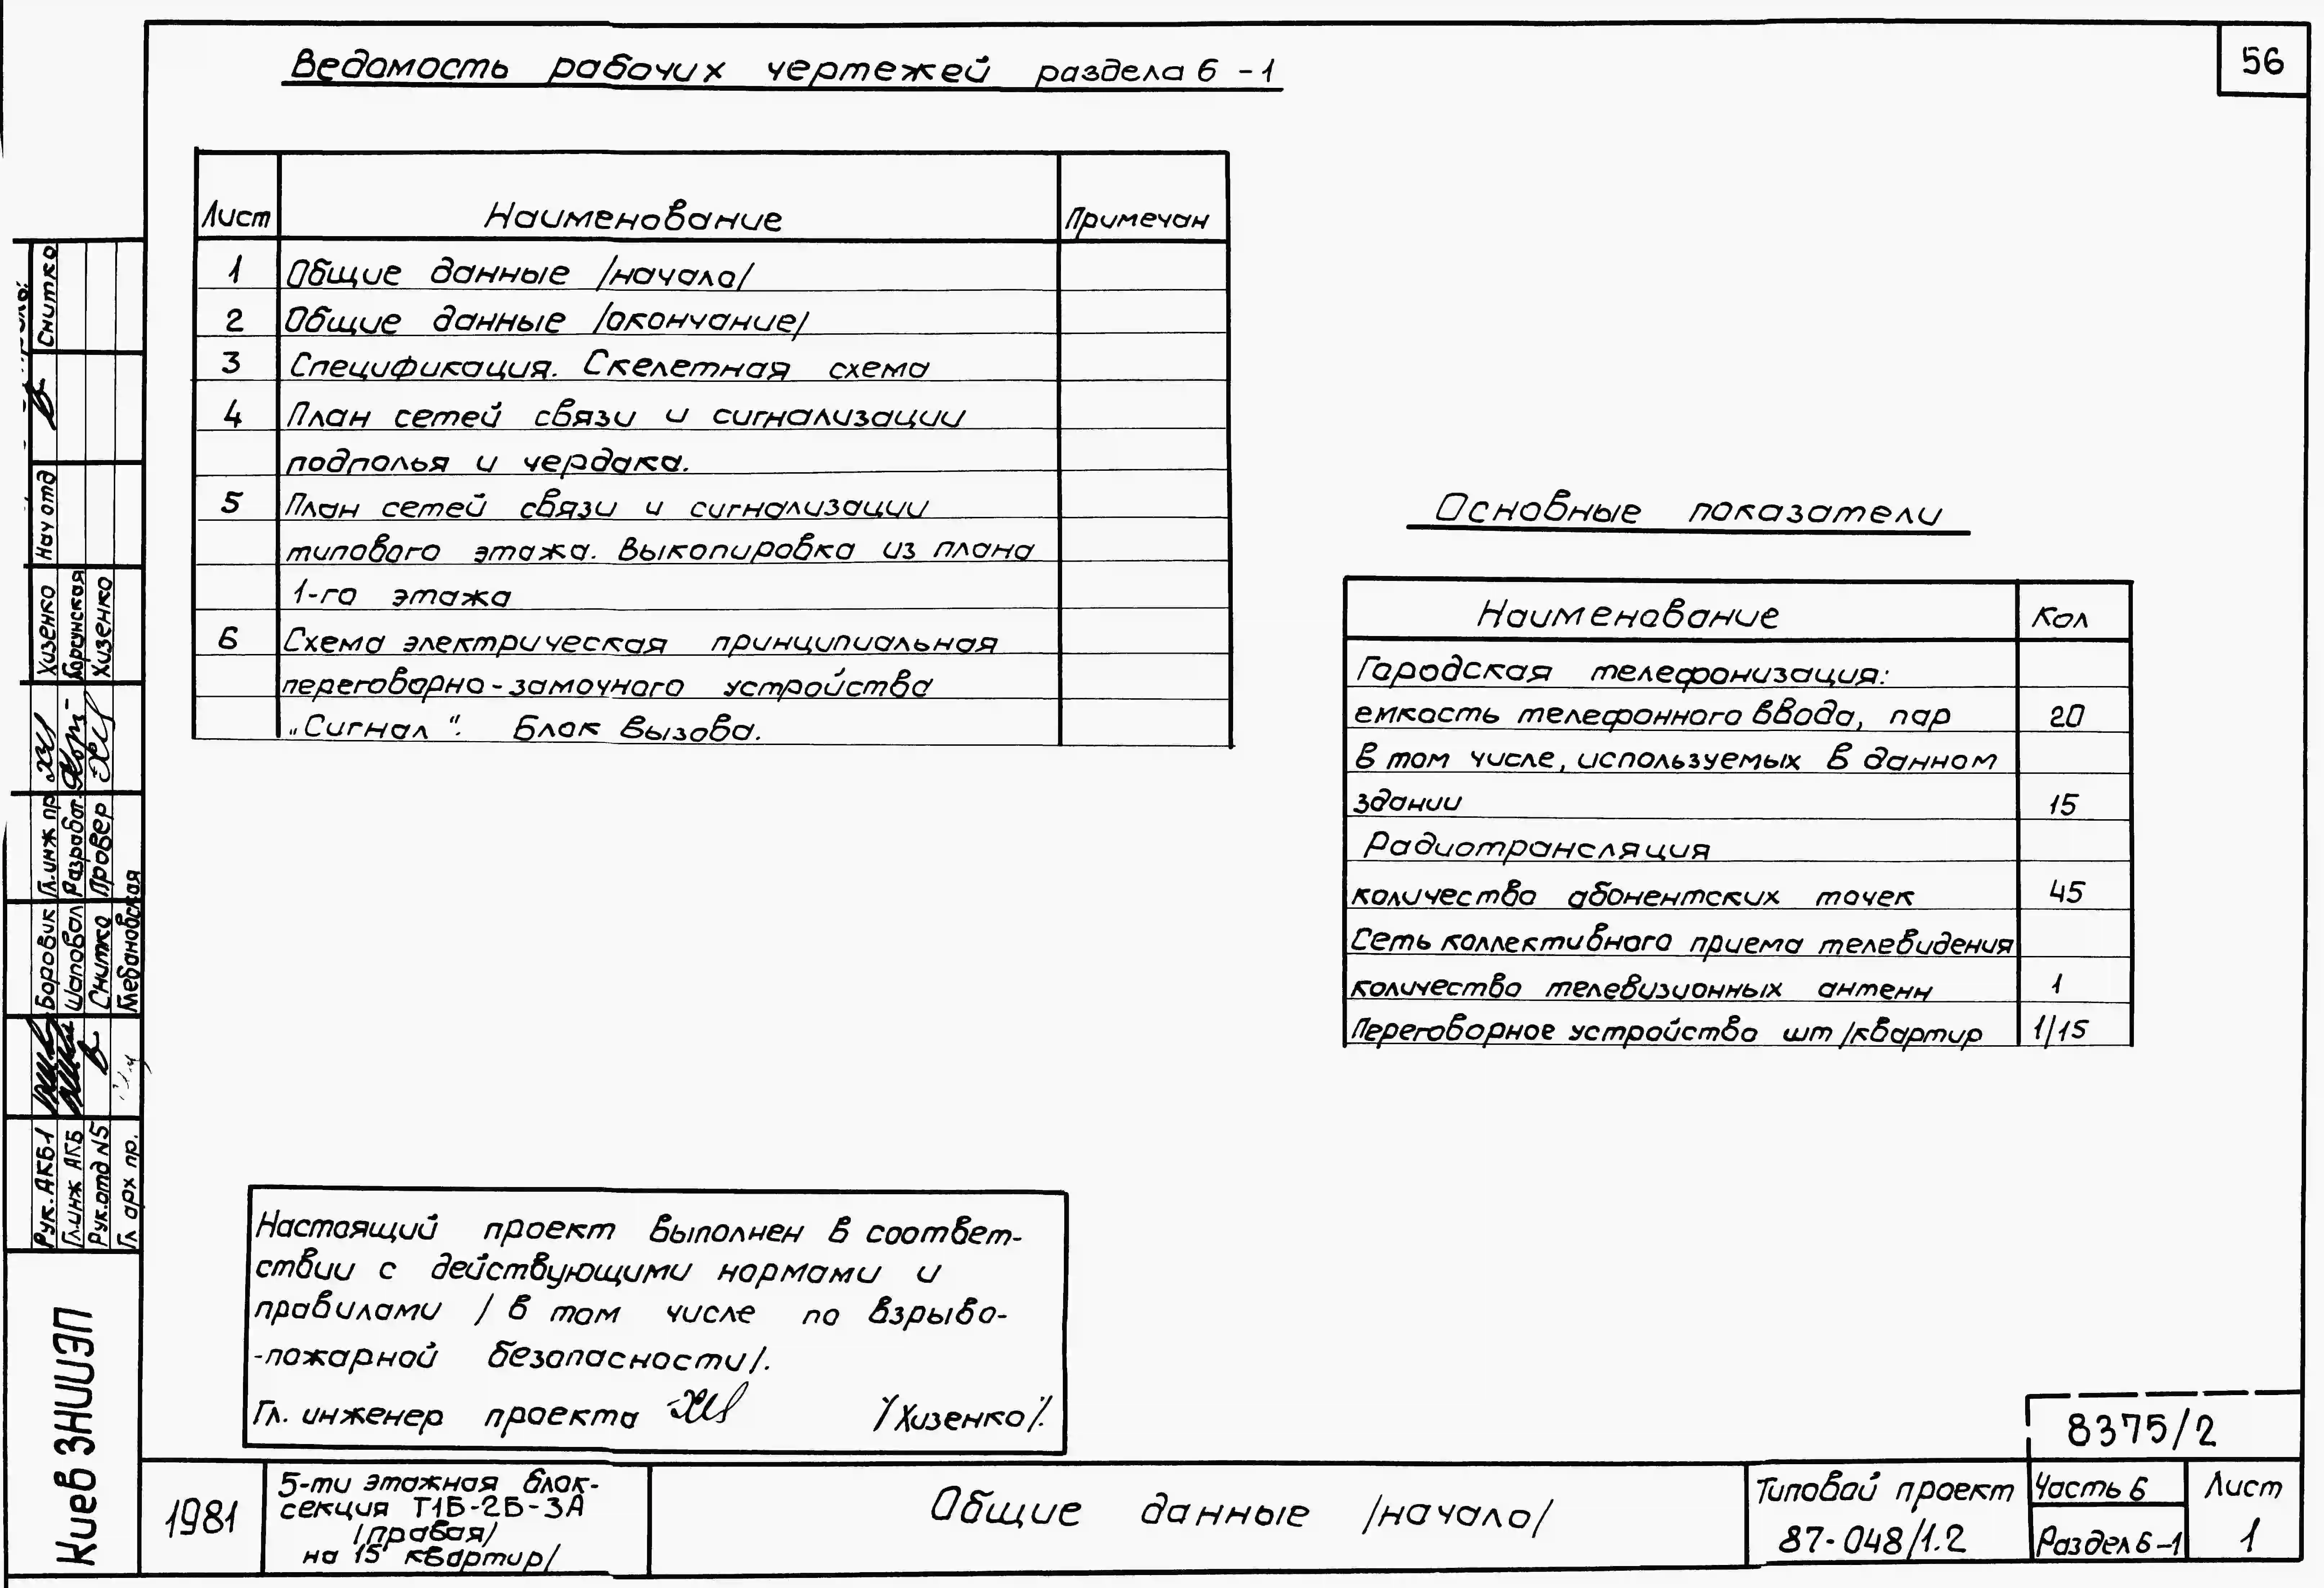 56
Ведомость рабочих чертежей раздела 6 -1
Лист Наименование Примечан
1 Общие данные /начало/
2 Общие данные /окончание/
3 Спецификация. Скелетная схема
4 План сетей связи и сигнализации
подполья и чердака.
5 План сетей связи и сигнализации
типового этажа. Выкопировка из плана
1-го этажа
6 Схема электрическая принципиальная
переговорно-замочного устройства
„Сигнал". Блок вызова.
Основные показатели
Наименование Кол
Городская телефонизация:
емкость телефонного ввода, пар 20
в том числе, используемых в данном
здании 15
Радиотрансляция
количество абонентских точек 45
Сеть коллективного приема телевидения
количество телевизионных антенн 1
Переговорное устройство шт/квартир 1/15
Настоящий проект выполнен в соответ-
ствии с действующими нормами и
правилами / в том числе по взрыво-
-пожарной безопасности/.
Гл. инженер проекта /Хизенко/.
8375/2
1981
5-ти этажная блок-
секция Т1Б-2Б-3А
/правая/
на 15 квартир/
Общие данные /начало/
Типовой проект
87-048/1.2
Часть 6
Раздел 6-1
Лист
1
Киев ЗНИИЭП
Рук. АКБ1 Боровик Гл.инж пр Хизенко Нач отд Снитко
Гл.инж АКБ Шаповал Разработ. Корсунская
Рук.отд N5 Снитко Провер Хизенко
Гл арх пр.